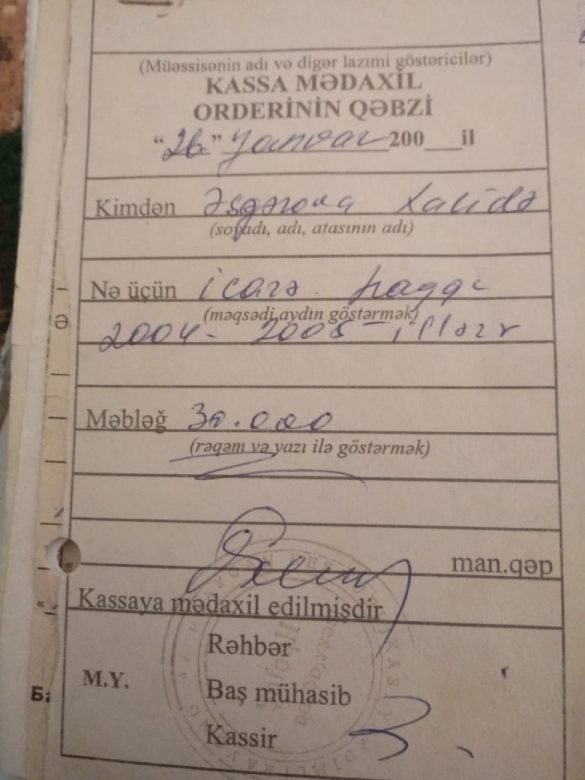 (Müəssisənin adı və digər lazımi göstəricilər)
KASSA MƏDAXİL
ORDERİNİN QƏBZİ
“26” Yanvar 200___il
Kimdən Əsgərova Xalidə
(soyadı, adı, atasının adı)
Nə üçün icarə haqqı
(məqsədi aydın göstərmək)
2004-2005-illər
Məbləğ 30.000
(rəqəm və yazı ilə göstərmək)
man.qəp
Kassaya mədaxil edilmişdir
Rəhbər
M.Y.
Baş mühasib
Kassir
Ба
Ə